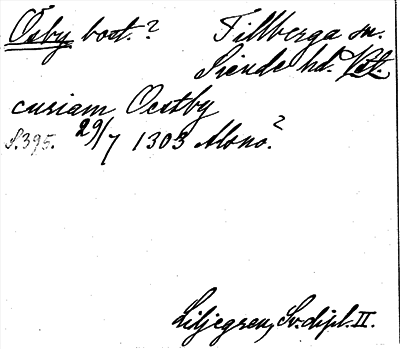 Ösby bost.? Tillberga sn.
Siende hd. Vstl.
curiam Oestby
S. 395. 29/7 1303 Alsnö.?
Liljegren, Sv. dipl. II.